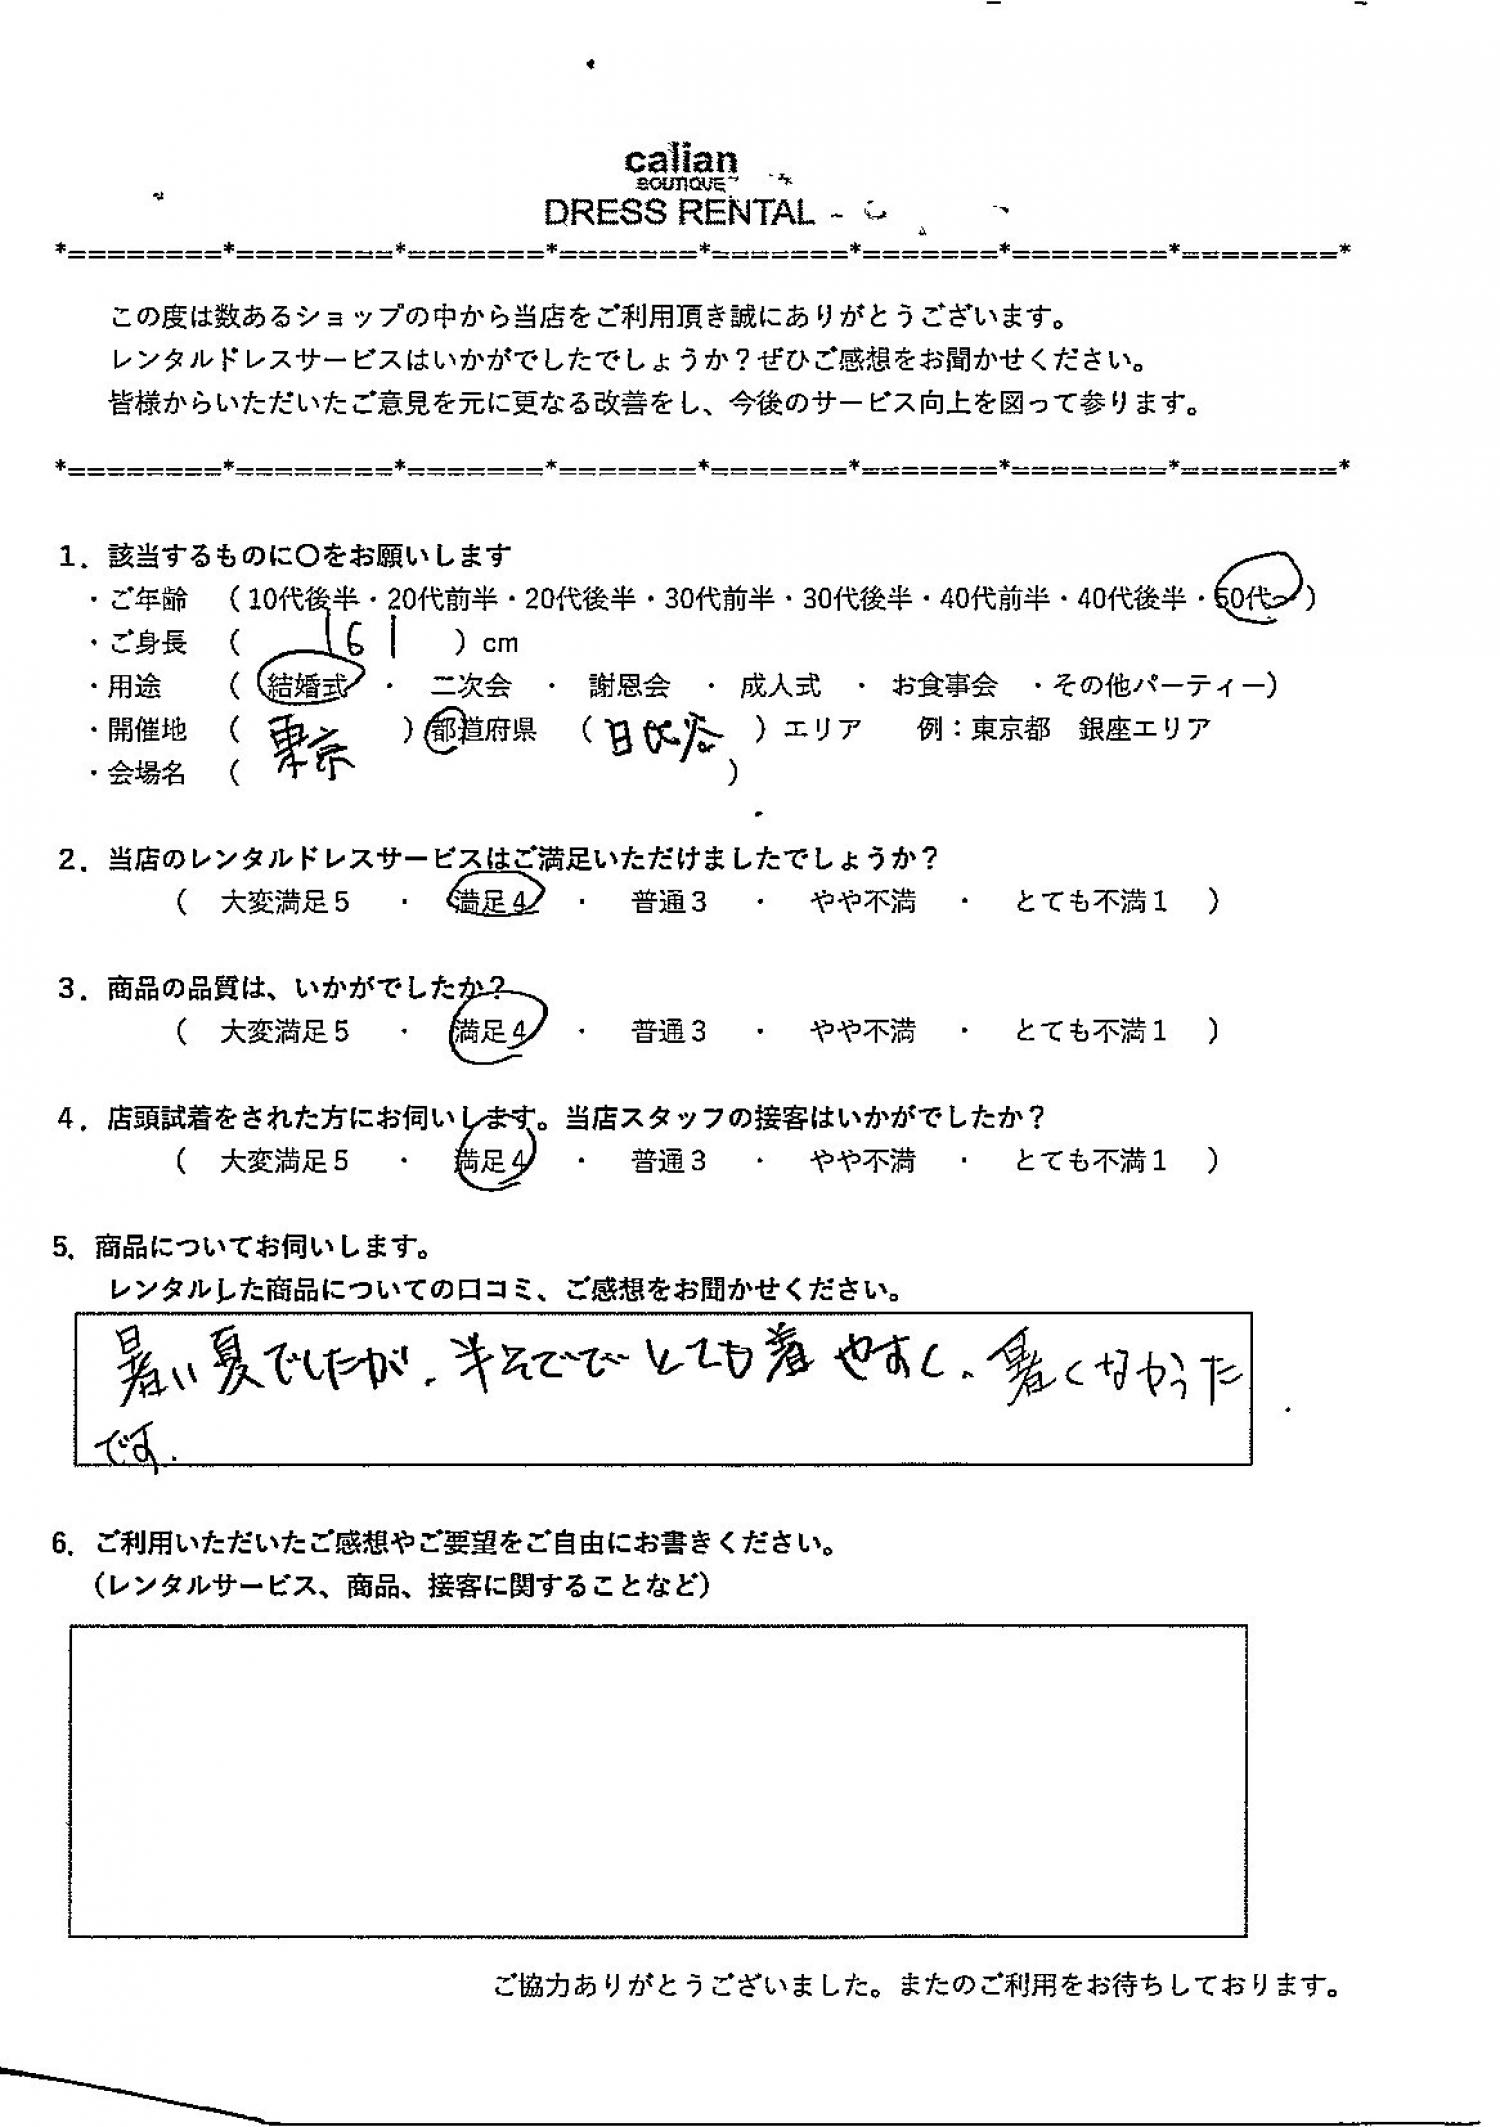 calian
BOUTIQUE
DRESS RENTAL
*========*========*=======*=======*=======*=======*========*========*
この度は数あるショップの中から当店をご利用頂き誠にありがとうございます。
レンタルドレスサービスはいかがでしたでしょうか？ぜひご感想をお聞かせください。
皆様からいただいたご意見を元に更なる改善をし、今後のサービス向上を図って参ります。
*========*========*=======*=======*=======*=======*========*========*
1．該当するものに〇をお願いします
・ご年齢 （10代後半・20代前半・20代後半・30代前半・30代後半・40代前半・40代後半・50代～）
・ご身長 （ 161 ）cm
・用途 （ 結婚式 ・ 二次会 ・ 謝恩会 ・ 成人式 ・ お食事会 ・その他パーティー）
・開催地 （ 東京 ）都道府県 （ 日比谷 ）エリア 例：東京都 銀座エリア
・会場名 （ ）
2．当店のレンタルドレスサービスはご満足いただけましたでしょうか？
（ 大変満足５ ・ 満足４ ・ 普通３ ・ やや不満 ・ とても不満１ ）
3．商品の品質は、いかがでしたか？
（ 大変満足５ ・ 満足４ ・ 普通３ ・ やや不満 ・ とても不満１ ）
4．店頭試着をされた方にお伺いします。当店スタッフの接客はいかがでしたか？
（ 大変満足５ ・ 満足４ ・ 普通３ ・ やや不満 ・ とても不満１ ）
5．商品についてお伺いします。
レンタルした商品についての口コミ、ご感想をお聞かせください。
暑い夏でしたが、半そででとても着やすく、暑くなかった
です。
6．ご利用いただいたご感想やご要望をご自由にお書きください。
（レンタルサービス、商品、接客に関することなど）
ご協力ありがとうございました。またのご利用をお待ちしております。